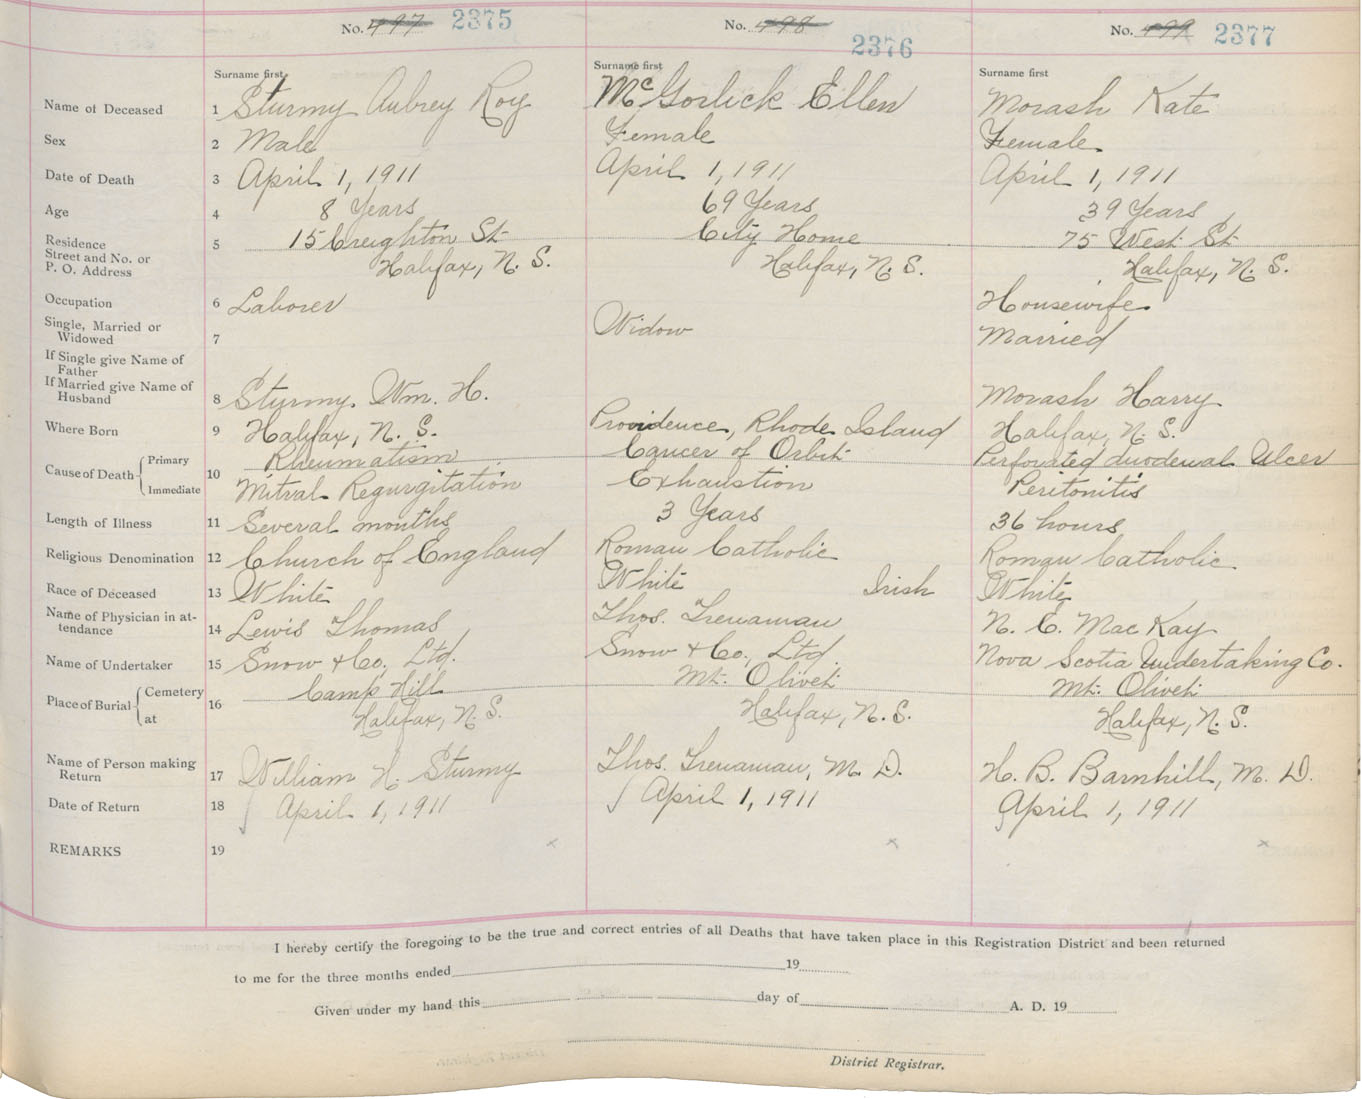 No. 497 2375
No. 498 2376
No. 499 2377
Surname first
Surname first
Surname first
Name of Deceased 1 Sturmy Aubrey Roy
McGorlick Ellen
Morash Kate
Sex 2 Male
Female
Female
Date of Death 3 April 1, 1911
April 1, 1911
April 1, 1911
Age 4 8 Years
69 Years
39 Years
Residence
Street and No. or
P. O. Address
5 15 Creighton St
Halifax, N. S.
City Home
Halifax, N. S.
75 West St
Halifax, N. S.
Occupation 6 Laborer
Housewife
Single, Married or
Widowed
7
Widow
Married
If Single give Name of
Father
If Married give Name of
Husband
8 Sturmy, Wm. H.
Morash Harry
Where Born 9 Halifax, N. S.
Providence, Rhode Island
Halifax, N. S.
Cause of Death Primary
Immediate
10 Rheumatism
Mitral Regurgitation
Cancer of Orbit
Exhaustion
Perforated duodenal Ulcer
Peritonitis
Length of Illness 11 Several months
3 Years
36 hours
Religious Denomination 12 Church of England
Roman Catholic
Roman Catholic
Race of Deceased 13 White
White Irish
White
Name of Physician in at-
tendance
14 Lewis Thomas
Thos. Trenaman
N. E. MacKay
Name of Undertaker 15 Snow & Co., Ltd.
Snow & Co., Ltd
Nova Scotia Undertaking Co.
Place of Burial Cemetery
at
16 Camp Hill
Halifax, N. S.
Mt. Olivet
Halifax, N. S.
Mt. Olivet
Halifax, N. S.
Name of Person making
Return
17 William H. Sturmy
Thos. Trenaman, M. D.
H. B. Barnhill, M. D.
Date of Return 18 April 1, 1911
April 1, 1911
April 1, 1911
REMARKS 19
x
x
x
I hereby certify the foregoing to be the true and correct entries of all Deaths that have taken place in this Registration District and been returned
to me for the three months ended 19
Given under my hand this day of A. D. 19
District Registrar.